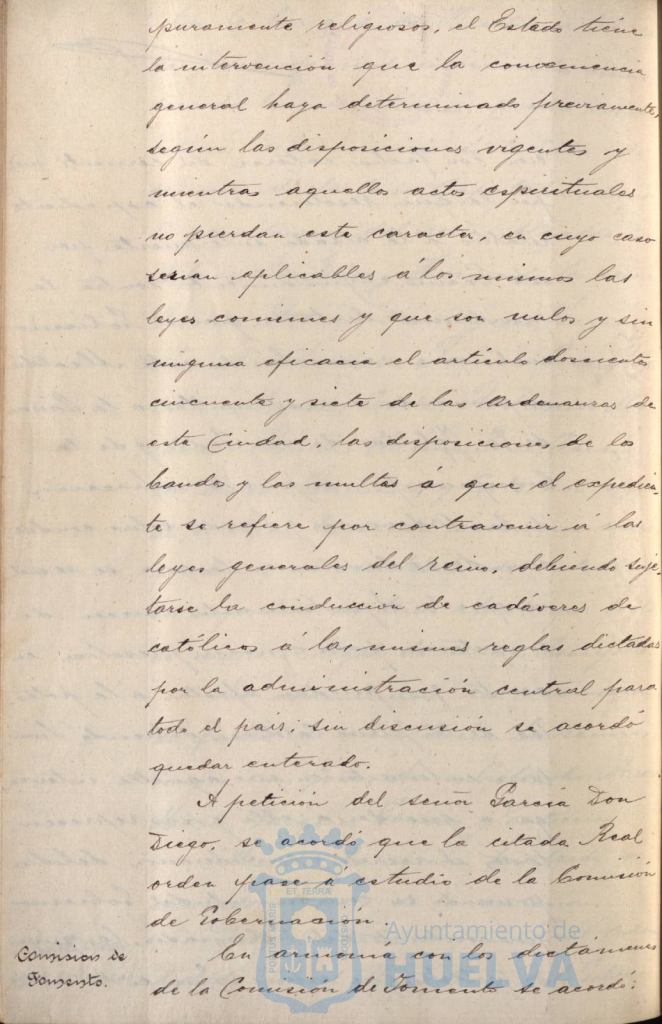 puramente religiosos, el Estado tiene
la intervención que la conveniencia
general haya determinado previamente,
según las disposiciones vigentes y
mientras aquellos actos espirituales
no pierdan este caracter, en cuyo caso
serían aplicables á los mismos las
leyes comunes y que son nulos y sin
ninguna eficacia el artículo doscientos
cincuenta y siete de las Ordenanzas de
esta Ciudad, las disposiciones de los
bandos y las multas á que el expedien-
te se refiere por contravenir á las
leyes generales del reino, debiendo suje-
tarse la conducción de cadáveres de
católicos á las mismas reglas dictadas
por la administración central para
todo el pais; sin discusión se acordó
quedar enterado.
A petición del señor García Don
Diego, se acordó que la citada Real
orden pase á estudio de la Comisión
de Gobernación.
Comision de
Fomento.
En armonía con los dictámenes
de la Comisión de Fomento se acordó:
Ayuntamiento de
HUELVA